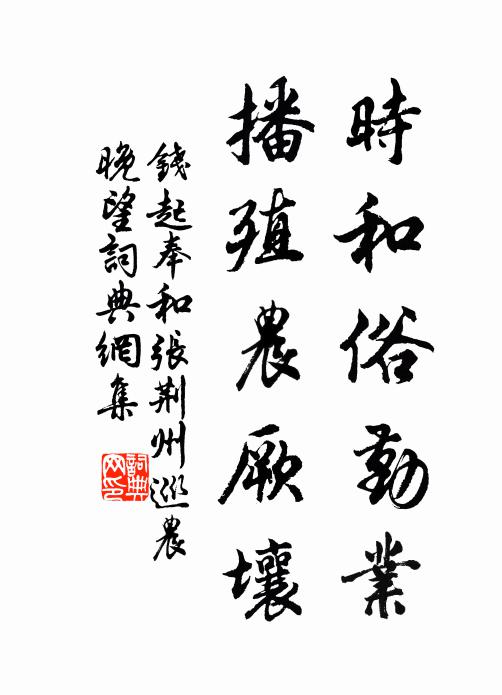 時和俗勤業
播殖農厥壤
錢起奉和張荆州巡農
晚望詞典網集
詞典
网印